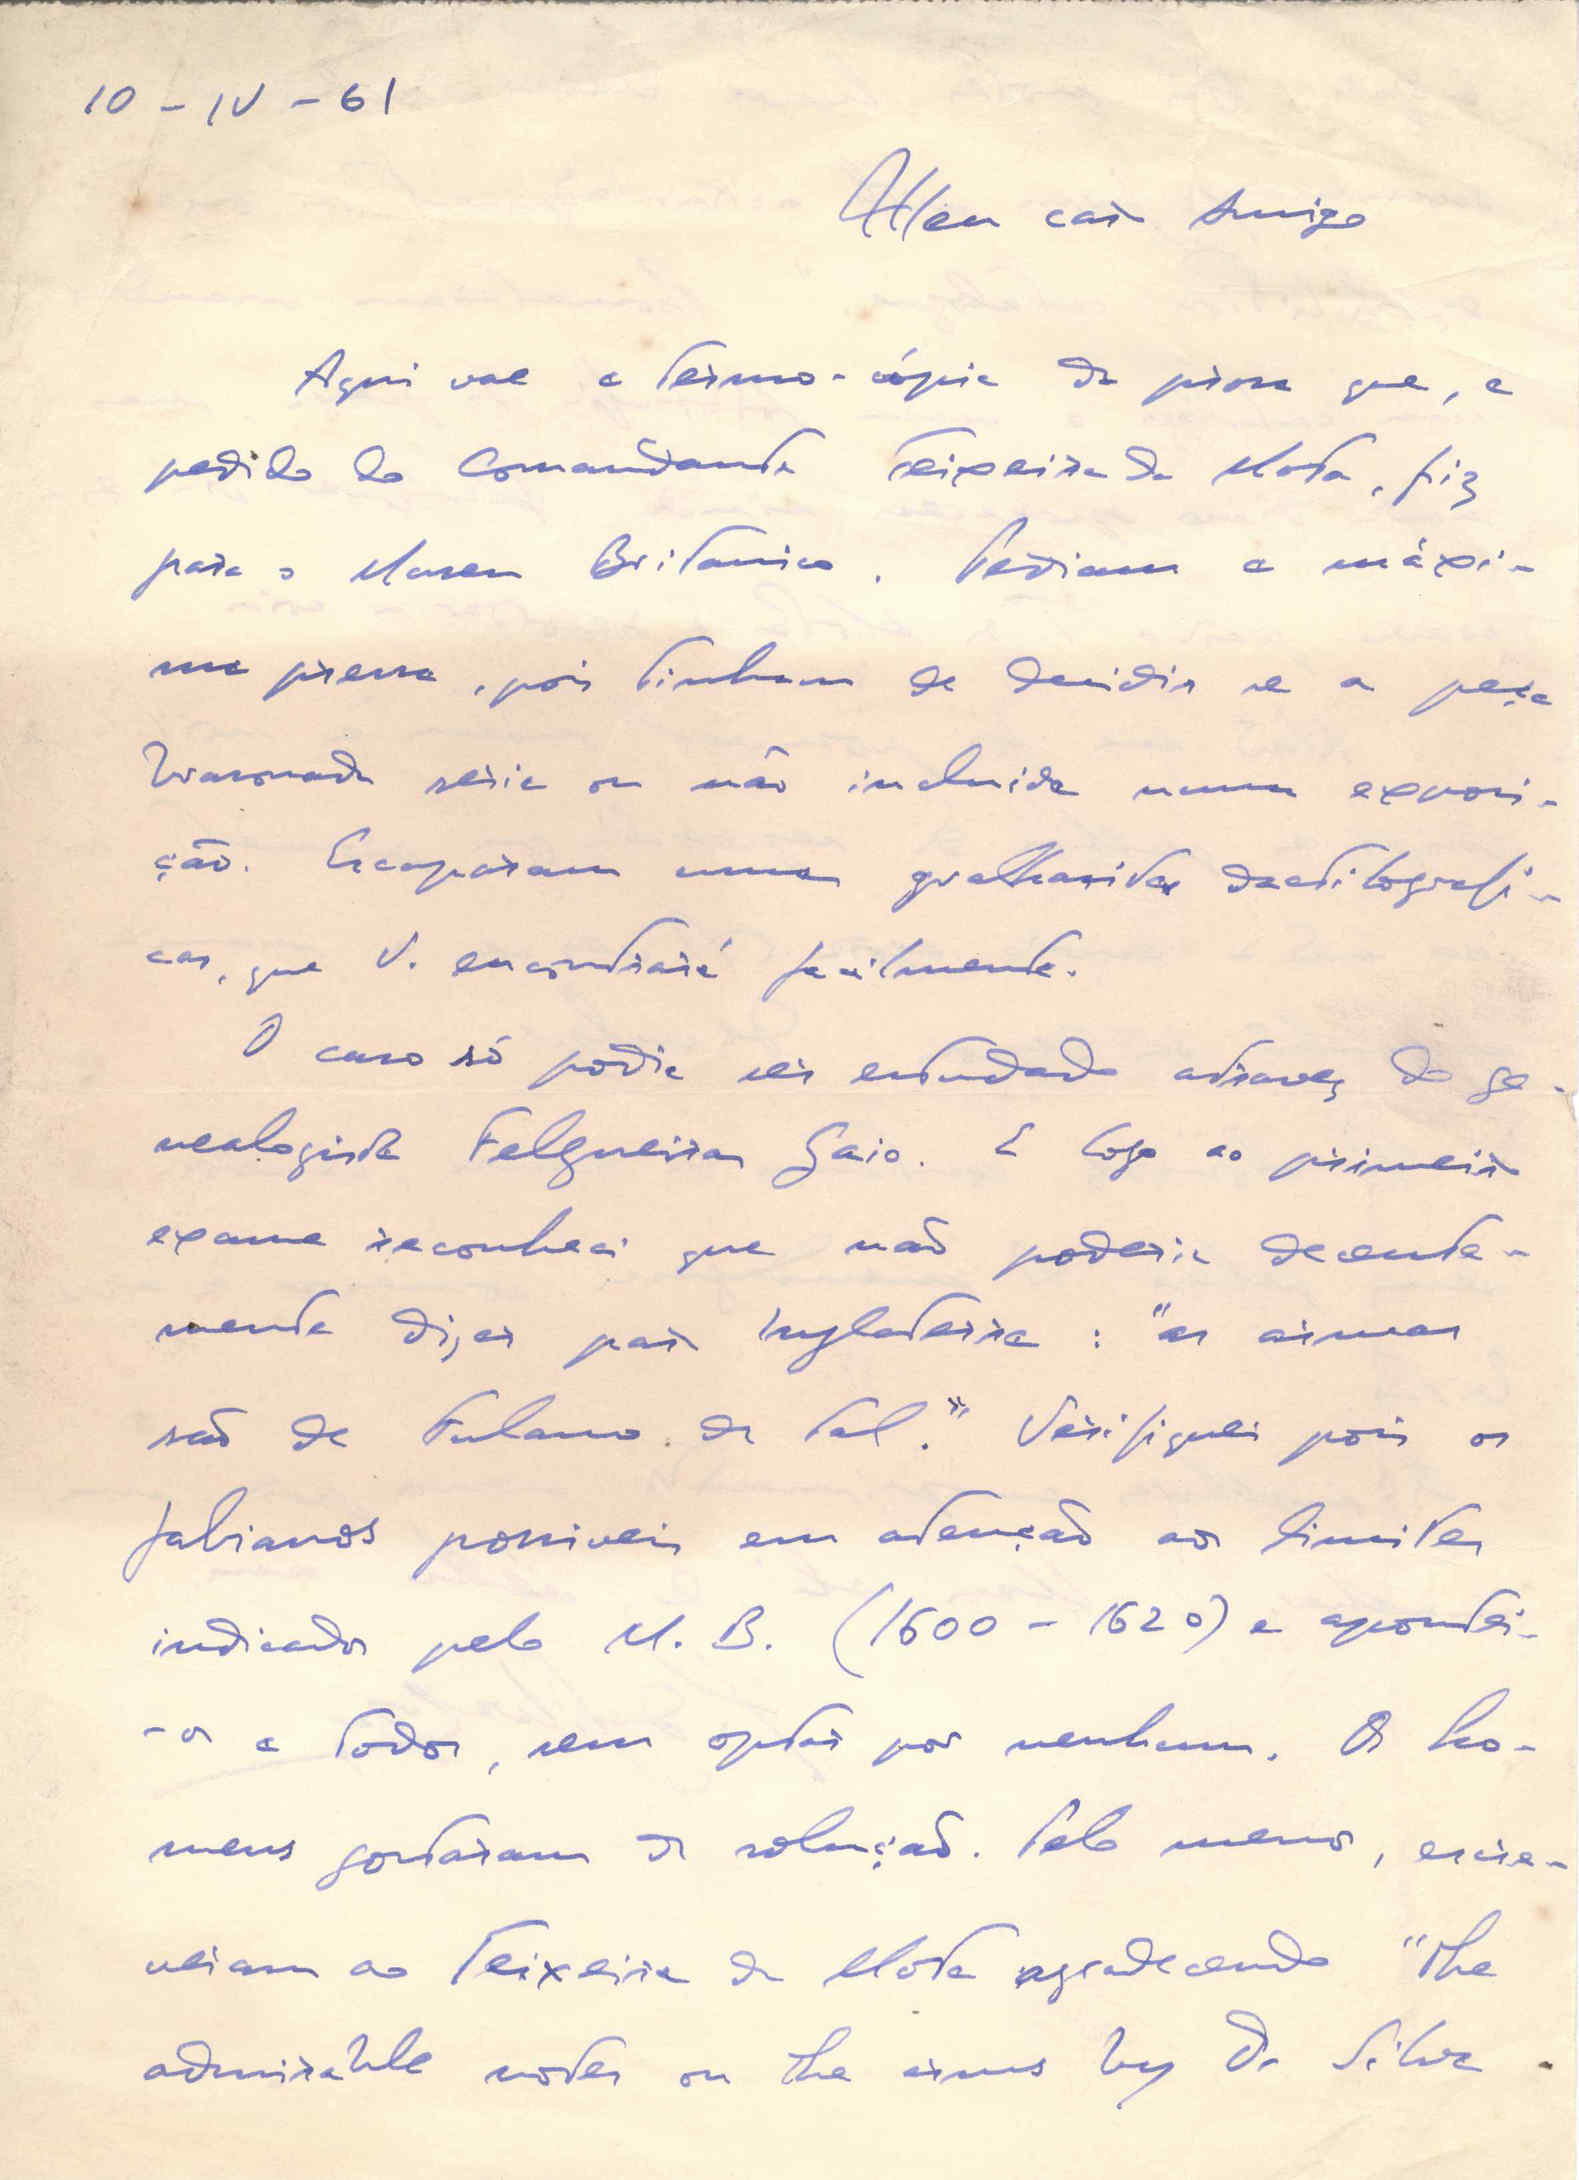 10 - IV - 61
Meu caro Amigo
Aqui vae a termo-cópia da prosa que, a
pedido do Comandante Teixeira da Mota, fiz
para o Museu Britanico. Pediam a máxi-
ma pressa, pois tinham de decidir se a peça
brasonada seria ou não incluida numa exposi-
ção. Escaparam umas gralhasitas dactilografi-
cas, que V. encontrará facilmente.
O caso só podia ser estudado atravez do ge-
nealogista Felgueiras Gaio. E logo ao primeiro
exame reconheci que não poderia decente-
mente dizer para Inglaterra: "as armas
são de Fulano de tal." Verifiquei pois os
fabianos possiveis em atenção aos limites
indicados pelo M. B. (1600 - 1620) e apontei-
-os a todos, sem optar por nenhum. Os ho-
mens gostaram da solução. Pelo menos, escre-
veram ao Teixeira da Mota agradecendo "the
admirable notes on the arms by Dr Silva